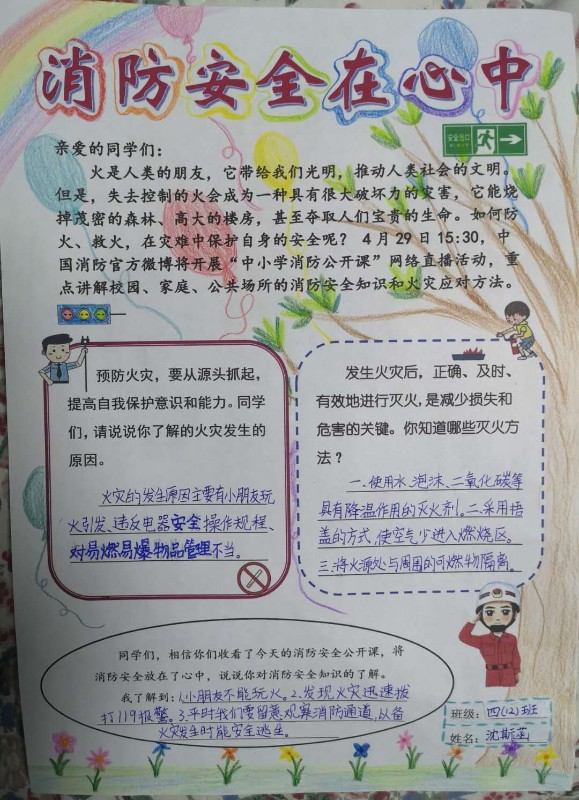 消防安全在心中
安全出口
亲爱的同学们：
火是人类的朋友，它带给我们光明，推动人类社会的文明。
但是，失去控制的火会成为一种具有很大破坏力的灾害，它能烧
掉茂密的森林、高大的楼房，甚至夺取人们宝贵的生命。如何防
火、救火，在灾难中保护自身的安全呢？4月29日15:30，中
国消防官方微博将开展“中小学消防公开课”网络直播活动，重
点讲解校园、家庭、公共场所的消防安全知识和火灾应对方法。
预防火灾，要从源头抓起，
提高自我保护意识和能力。同学
们，请说说你了解的火灾发生的
原因。
火灾的发生原因主要有小朋友玩
火引发、违反电器安全操作规程、
对易燃易爆物品管理不当。
发生火灾后，正确、及时、
有效地进行灭火，是减少损失和
危害的关键。你知道哪些灭火方
法？
一.使用水、泡沫、二氧化碳等
具有降温作用的灭火剂。二.采用捂
盖的方式，使空气少进入燃烧区。
三.将火源处与周围的可燃物隔离。
同学们，相信你们收看了今天的消防安全公开课，将
消防安全放在了心中，说说你对消防安全知识的了解。
我了解到：1.小朋友不能玩火。2.发现火灾迅速拨
打119报警。3.平时我们要留意观察消防通道，以备
火灾发生时能安全逃生。
班级：四(12)班
姓名：沈斯函